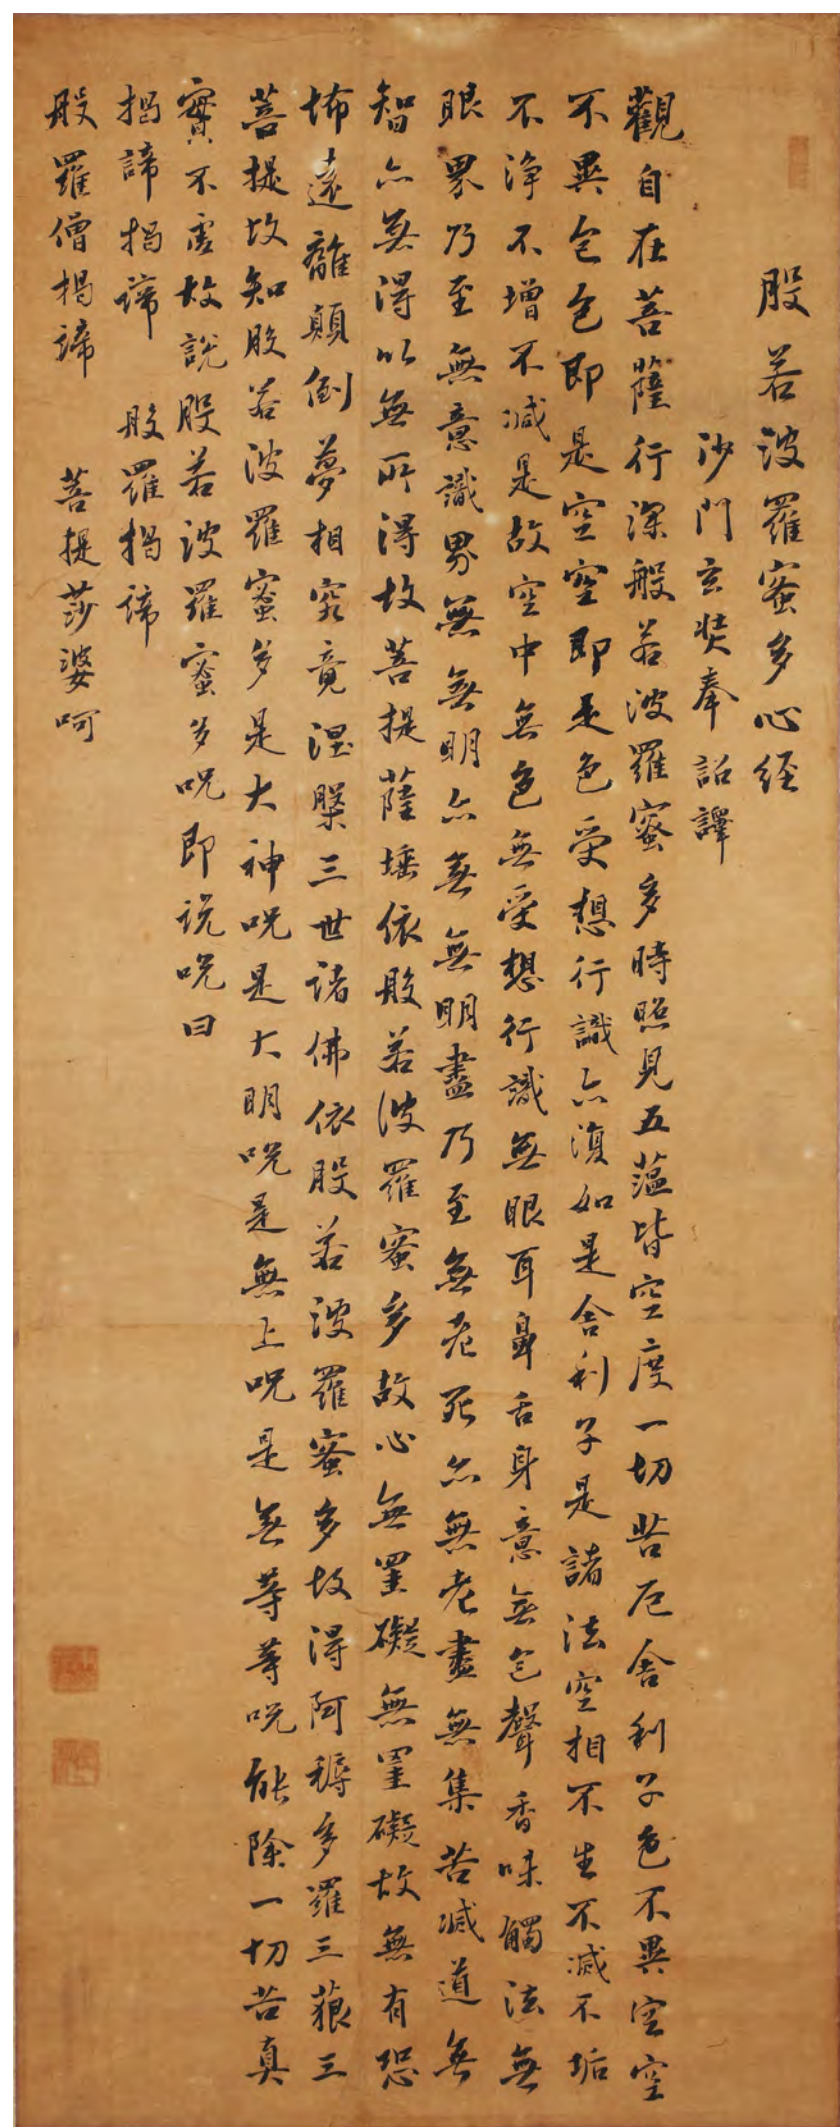 般若波羅蜜多心經
沙門玄奘奉詔譯
觀自在菩薩行深般若波羅蜜多時照見五蘊皆空度一切苦厄舍利子色不異空空
不異色色即是空空即是色受想行識亦復如是舍利子是諸法空相不生不滅不垢
不淨不增不減是故空中無色無受想行識無眼耳鼻舌身意無色聲香味觸法無
眼界乃至無意識界無無明亦無無明盡乃至無老死亦無老盡無集苦滅道無
智亦無得以無所得故菩提薩埵依般若波羅蜜多故心無罣礙無罣礙故無有恐
怖遠離顛倒夢相究竟涅槃三世諸佛依般若波羅蜜多故得阿耨多羅三藐三
菩提故知般若波羅蜜多是大神呪是大明呪是無上呪是無等等呪能除一切苦真
實不虛故說般若波羅蜜多呪即說呪曰
揭諦揭諦 般羅揭諦
般羅僧揭諦 菩提莎婆呵